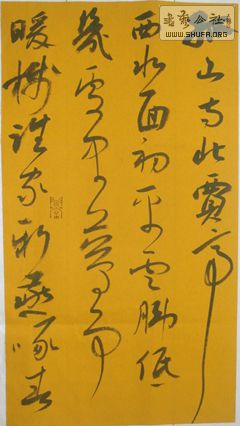 书艺公社
WWW.SHUFA.ORG
孤山寺北賈亭
西水面初平雲脚低
幾處早鶯爭
暖樹誰家新燕啄春